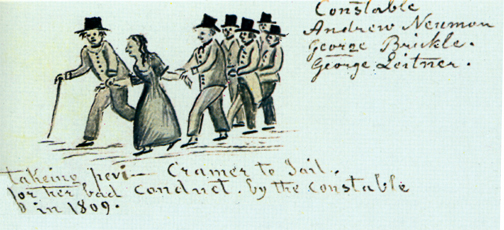 Constable
Andrew Newman
George Brickle.
George Leitner.
takeing pevi— Cramer to Jail.
for her bad conduct. by the constable
in 1809.